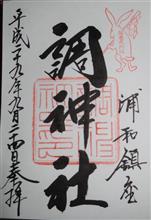 浦和鎮座
調神社
平成二十九年九月二十四日奉拝